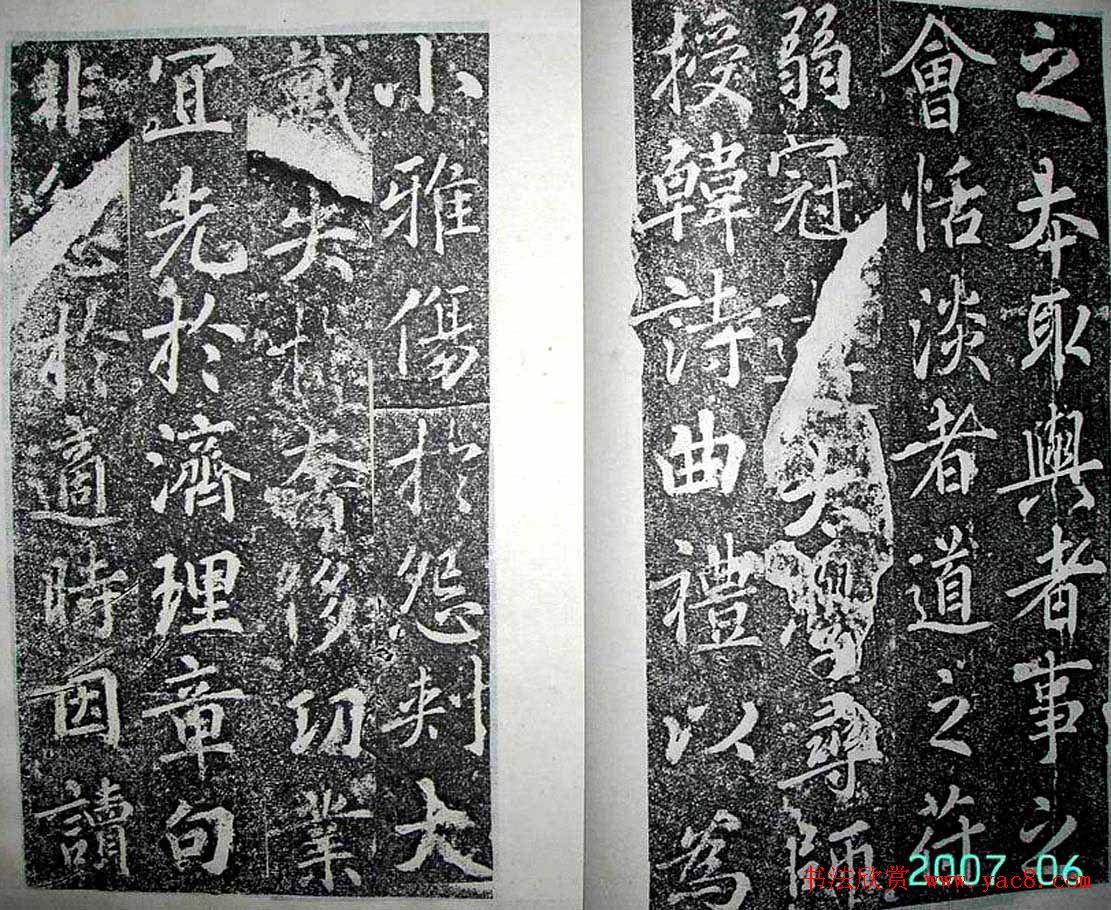 之本取與者事之
會恬淡者道之符
弱冠太學尋師
授韓詩曲禮以為
小雅傷於怨刺大
戴失於奢侈功業
宜先於濟理章句
非急於適時因讀
2007 06
书法欣赏 www.yac8.com